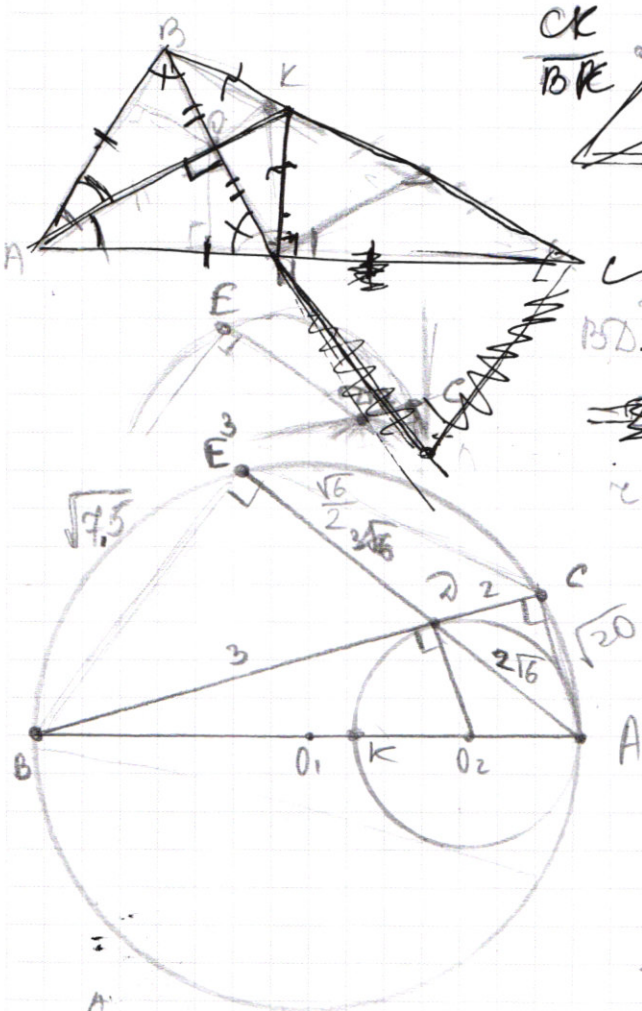 CK
BK
B
K
A
E
BD
C
E
3
√7,5
√6
2
3√6
D
2
C
3
√20
2√6
B
O₁
K
O₂
A
A